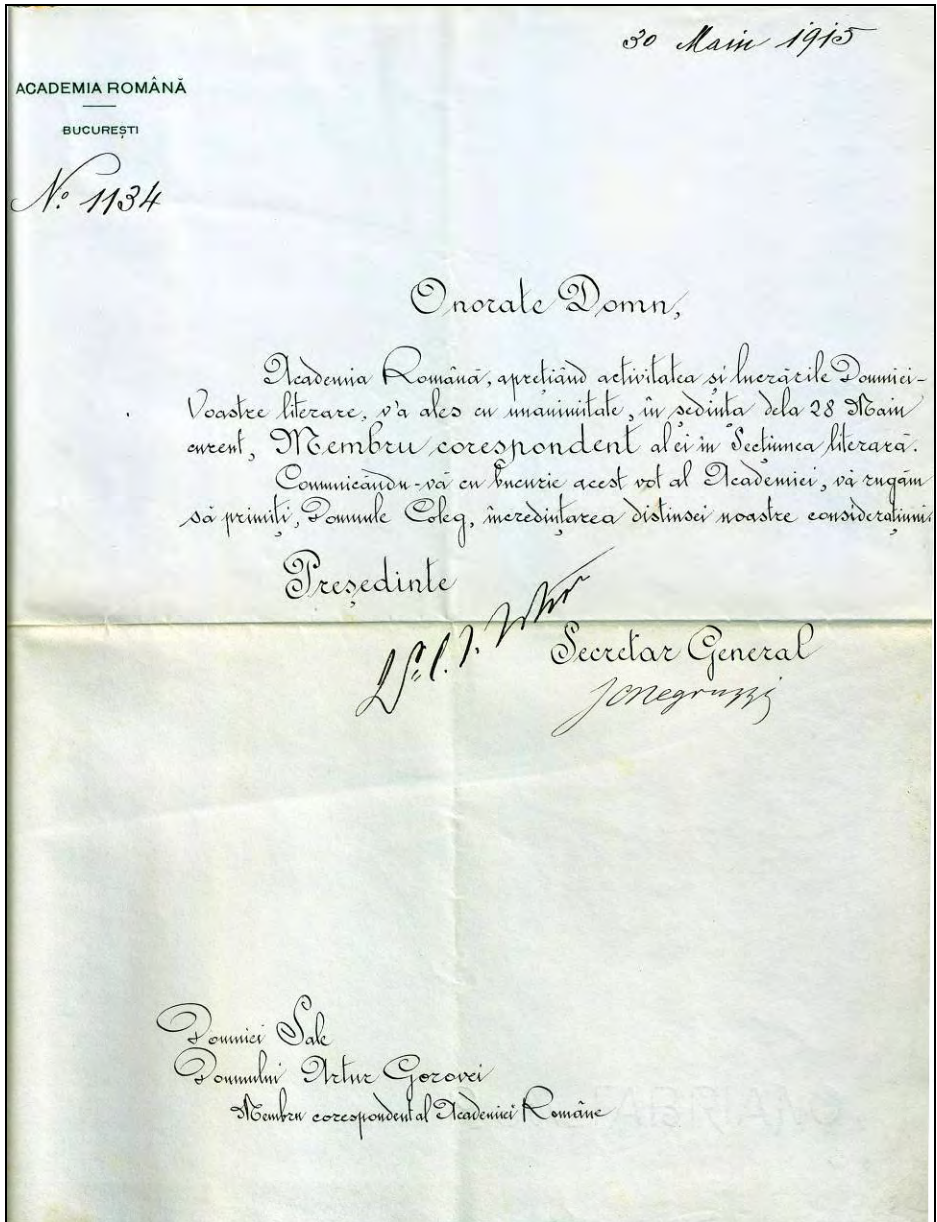 30 Maiu 1915
ACADEMIA ROMÂNĂ
BUCUREȘTI
No. 1134
Onorate Domn,
Academia Română, aprețiând activitatea și lucrările Domniei-
Voastre literare, v'a ales cu unanimitate, în ședința dela 28 Maiu
curent, Membru corespondent al ei în Secțiunea literară.
Comunicându-vă cu bucurie acest vot al Academiei, vă rugăm
să primiți, Domnule Coleg, încredințarea distinsei noastre considerațiuni.
Președinte
Secretar General
J C Negruzzi
Domniei Sale
Domnului Artur Gorovei
Membru corespondent al Academiei Române